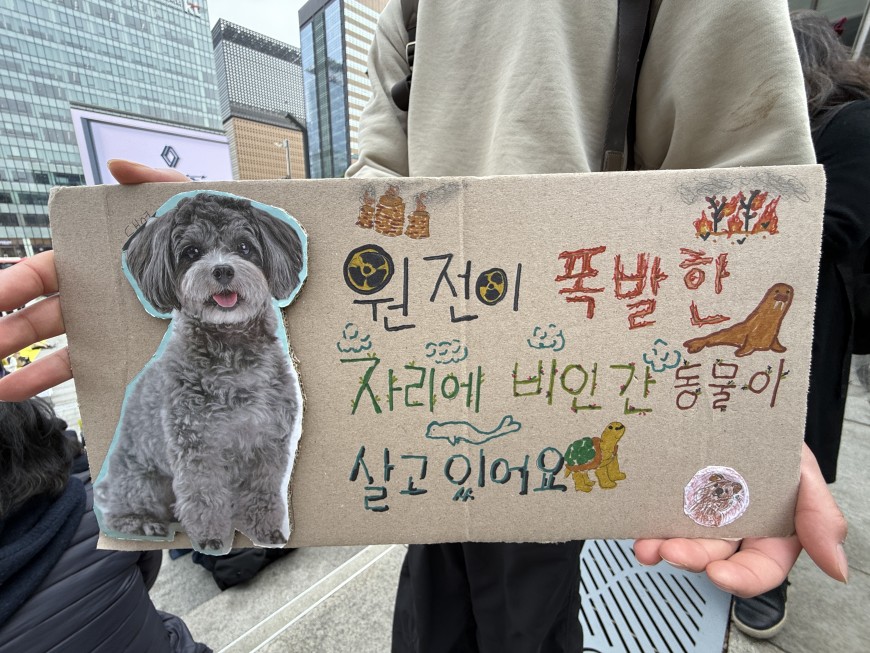 원전이 폭발한
자리에 비인간 동물이
살고 있어요